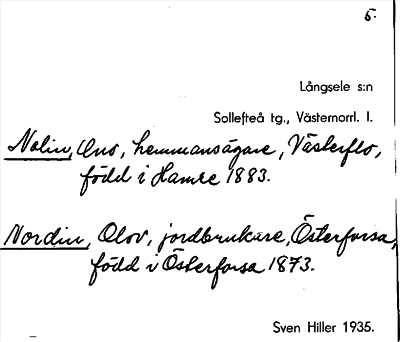 5.
Långsele s:n
Sollefteå tg., Västernorrl. l.
Nolin, Uno, hemmansägare, Västerflo,
född i Hamre 1883.
Nordin, Olov, jordbrukare, Österforsa,
född i Österforsa 1873.
Sven Hiller 1935.